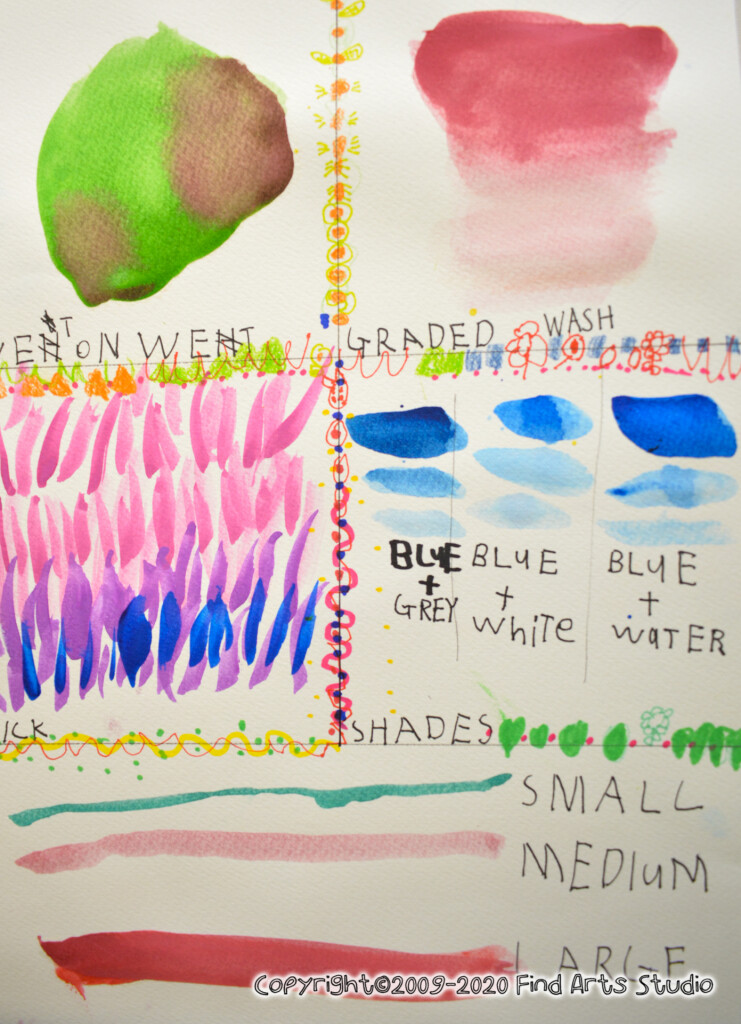 ET ON WET
GRADED WASH
BLUE + GREY
BLUE + WHITE
BLUE + WATER
ICK
SHADES
SMALL
MEDIUM
LARGE
Copyright©2009-2020 Find Arts Studio